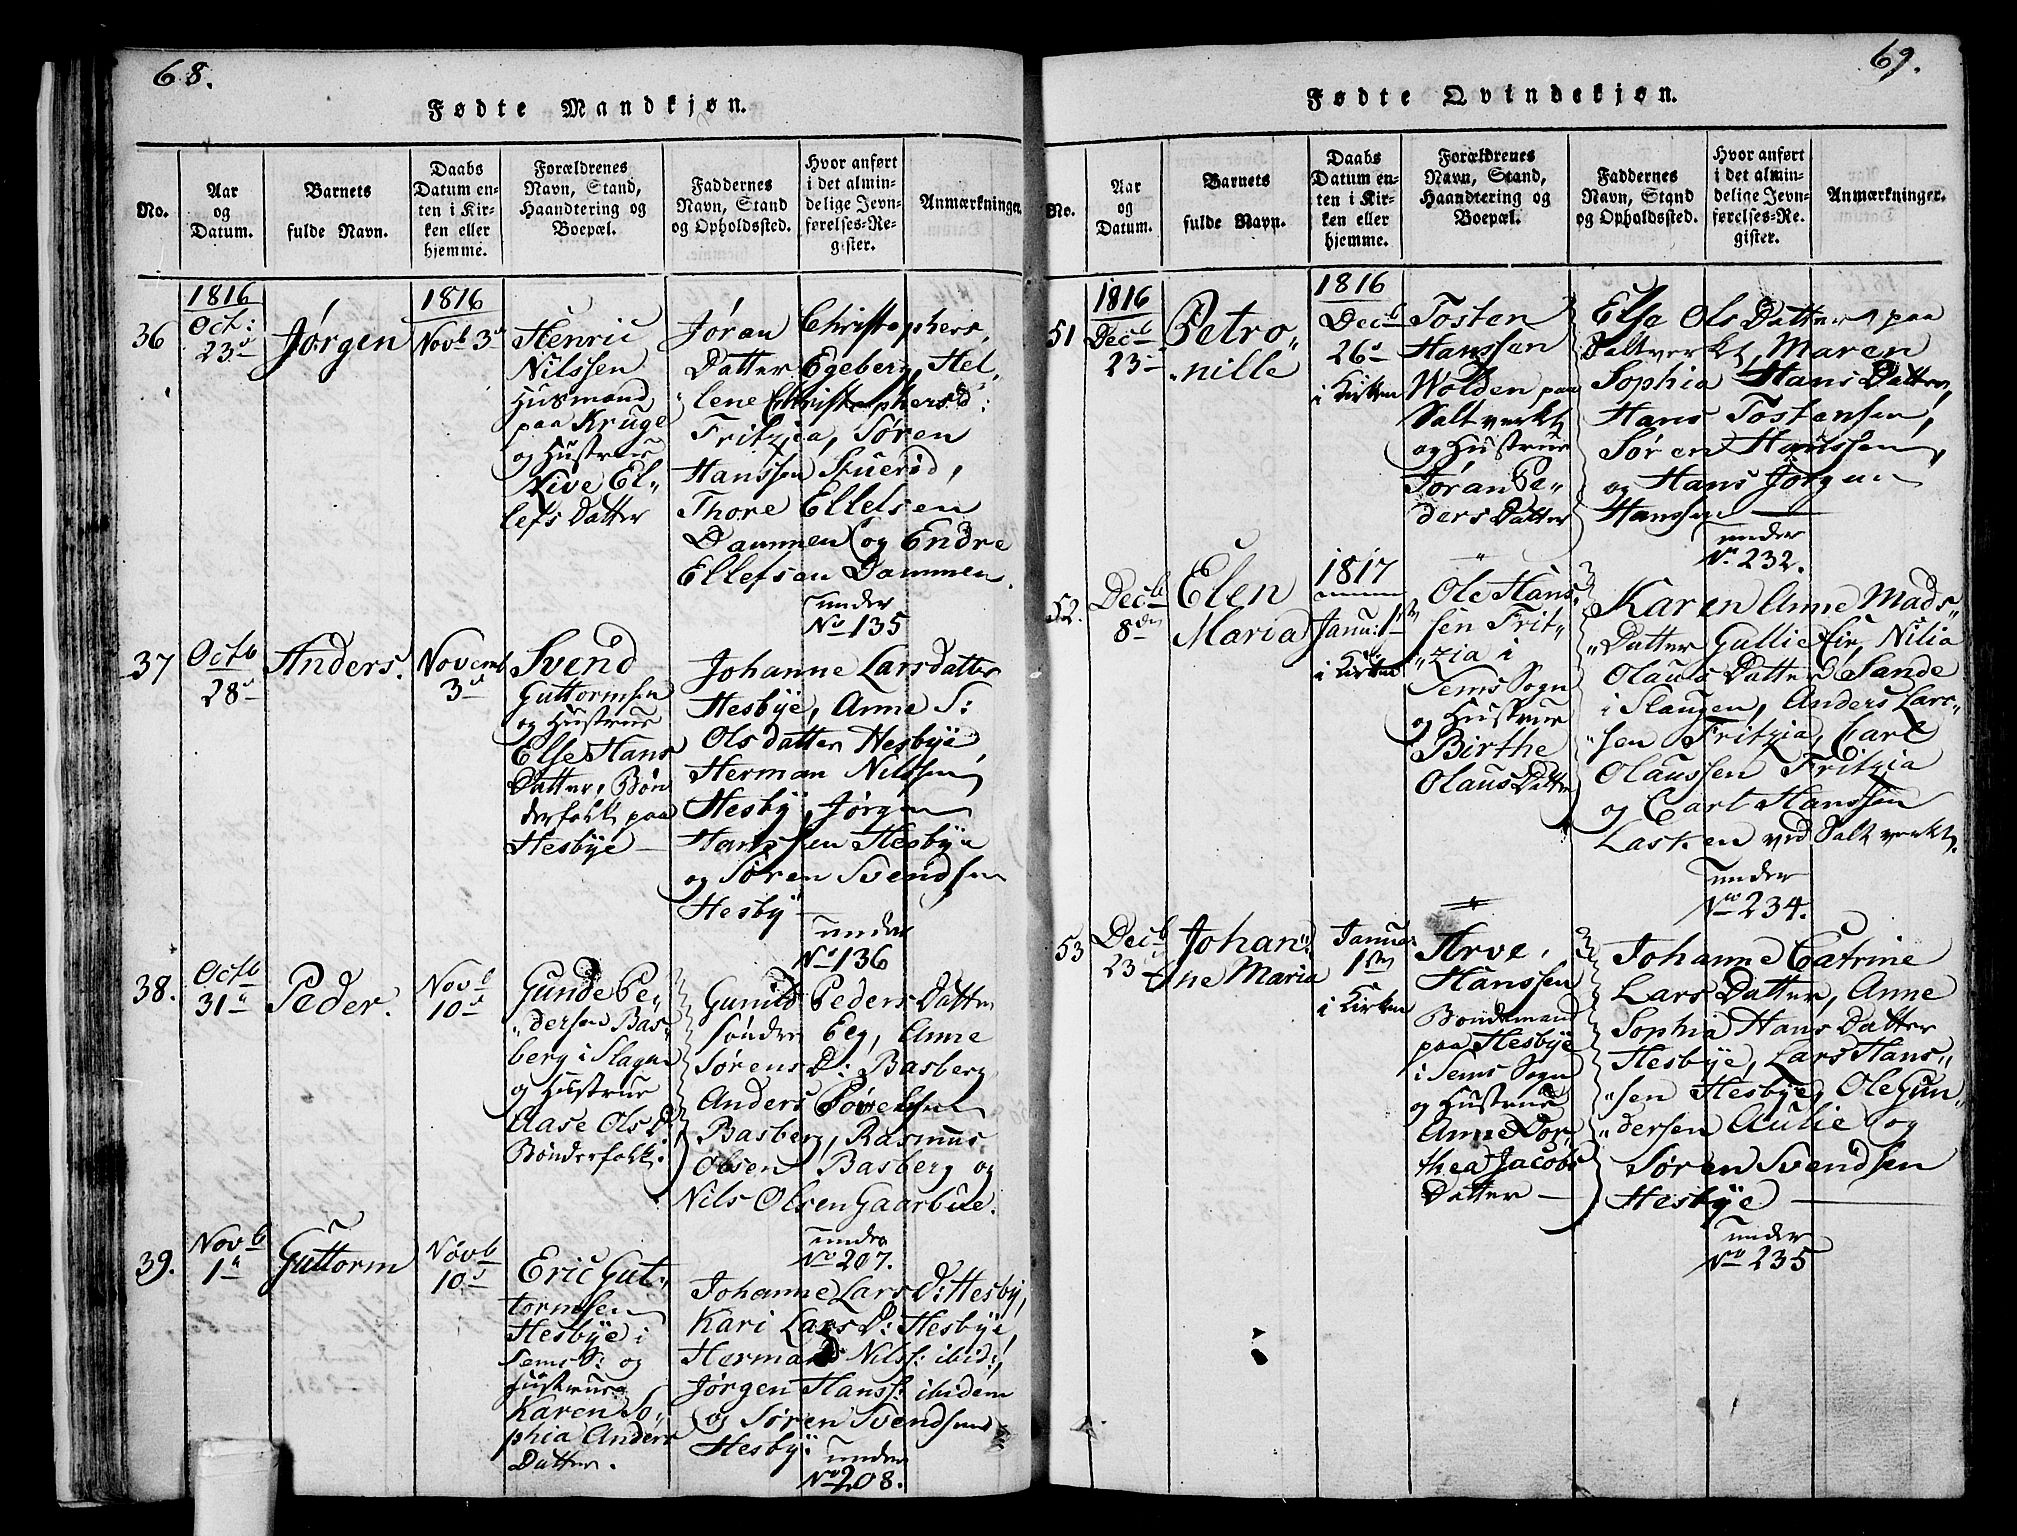 68.
Fødte Mandkjøn.
No.
Aar
og
Datum.
Barnets
fulde Navn.
Daabs
Datum en-
ten i Kir-
ken eller
hjemme.
Forældrenes
Navn, Stand,
Haandtering og
Boepæl.
Faddernes
Navn, Stand
og Opholdssted.
Hvor anført
i det almin-
delige Jevn-
førelses-Re-
gister.
Anmærkninger.
36
1816
Oct:
23d
Jørgen
1816
Novb 3d
Henric
Nilssen
Husmand
paa Kruge
og Hustrue
Live El„
lefs Datter
Jøran Christophers,
Datter Egeberg, Hel„
„lene Christophersd:
Fritzia, Søren
Hanssen Stuerød,
Thore Ellefsen
Dammen og Endre
Ellefsen Dammen.
under
No 135
37
Octb
28d
Anders.
Novemb
3d
Svend
Guttormsen
og Hustrue
Else Hans
Datter, Bøn
derfolk paa
Hesbye
Johanne Larsdatter
Hesbye, Anne S:
Olsdatter Hesbye,
Herman Nilssen
Hesby, Jørgen
Hanssen Hesbye
og Søren Svendsen
Hesby
under
No 136
38.
Octb
31
Peder.
Novb
10d
Gunde Pe„
„dersen Bas„
berg i Slagn
og Hustrue
Aase Ols D.
Bønderfolk.
Gunild Peders Datter
Søndre Eeg, Anne
Sørens D: Basberg
Anders
Basberg, Rasmus
Olsen Basberg og
Nils Olsen Gaarbue.
under
No 207.
39.
Novb
1
Guttorm
Novb
10d
Eric Gut„
tormsen
Hesbye i
Sems S: og
Hustrue
Karen So„
phia Anders
Datter.
Johanne Lars D: Hesby,
Kari Lars D: Hesbye,
Herman Nilss: ibid:,
Jørgen Hanss: ibidem
og Søren Svendsen
Hesby.
under
No 208.
69.
Fødte Qvindekjøn.
No.
Aar
og
Datum.
Barnets
fulde Navn.
Daabs
Datum en-
ten i Kir-
ken eller
hjemme.
Forældrenes
Navn, Stand,
Haandtering og
Boepæl.
Faddernes
Navn, Stand
og Opholdssted.
Hvor anført
i det almin-
delige Jevn-
førelses-Re-
gister.
Anmærkninger.
51
1816
Decb
23
Petro„
„nille
1816
Decb
26d
i Kirken
Tosten
Hanssen
Wolden paa
Saltverket
og Hustrue
Jøran Pe„
ders Datter
Else Ols Datter paa
Saltverket, Maren
Sophia Hans Datter,
Hans Tostensen,
Søren Hanssen,
og Hans Jørgen
Hanssen
under
No 232.
52.
Decb
8
Elen
Maria
1817
Janu: 1
i Kirken
Ole Hans„
sen Frit„
„zia i
Sems Sogn
og Hustrue
Birthe
Olaus Datter
Karen Anne Mads„
„Datter Gullie Eie, Nilia
Olaus Datter Sande
i Slaugen, Anders Lars„
„sen Fritzia, Carl
Olaussen Fritzia
og Carl Hanssen
Lasken ved Saltverket.
under
No 234.
53
Decb
23
Johan„
ne Maria
Janua:
1
i Kirken
Arve
Hanssen
Bondemand
paa Hesbye
i Sems Sogn
og Hustrue
Anne Dor„
thea Jacobs
Datter
Johanne Catrine
Lars Datter, Anne
Sophia Hans Datter
Hesbye, Lars Hans„
„sen Hesbye, Ole Gun„
„dersen Aulie og
Søren Svendsen
Hesbye
under
No 235